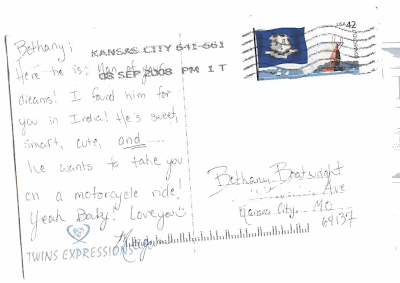 Bethany;
Here he is: Man of your
dreams! I found him for
you in India! He's sweet,
smart, cute, and....
he wants to take you
on a motorcycle ride!
Yeah Baby! Love you
TWINS EXPRESSIONS
KANSAS CITY 641-661
08 SEP 2008 PM 1 T
USA 42
Bethany Boatwright
Ave
Kansas City, MO
64137